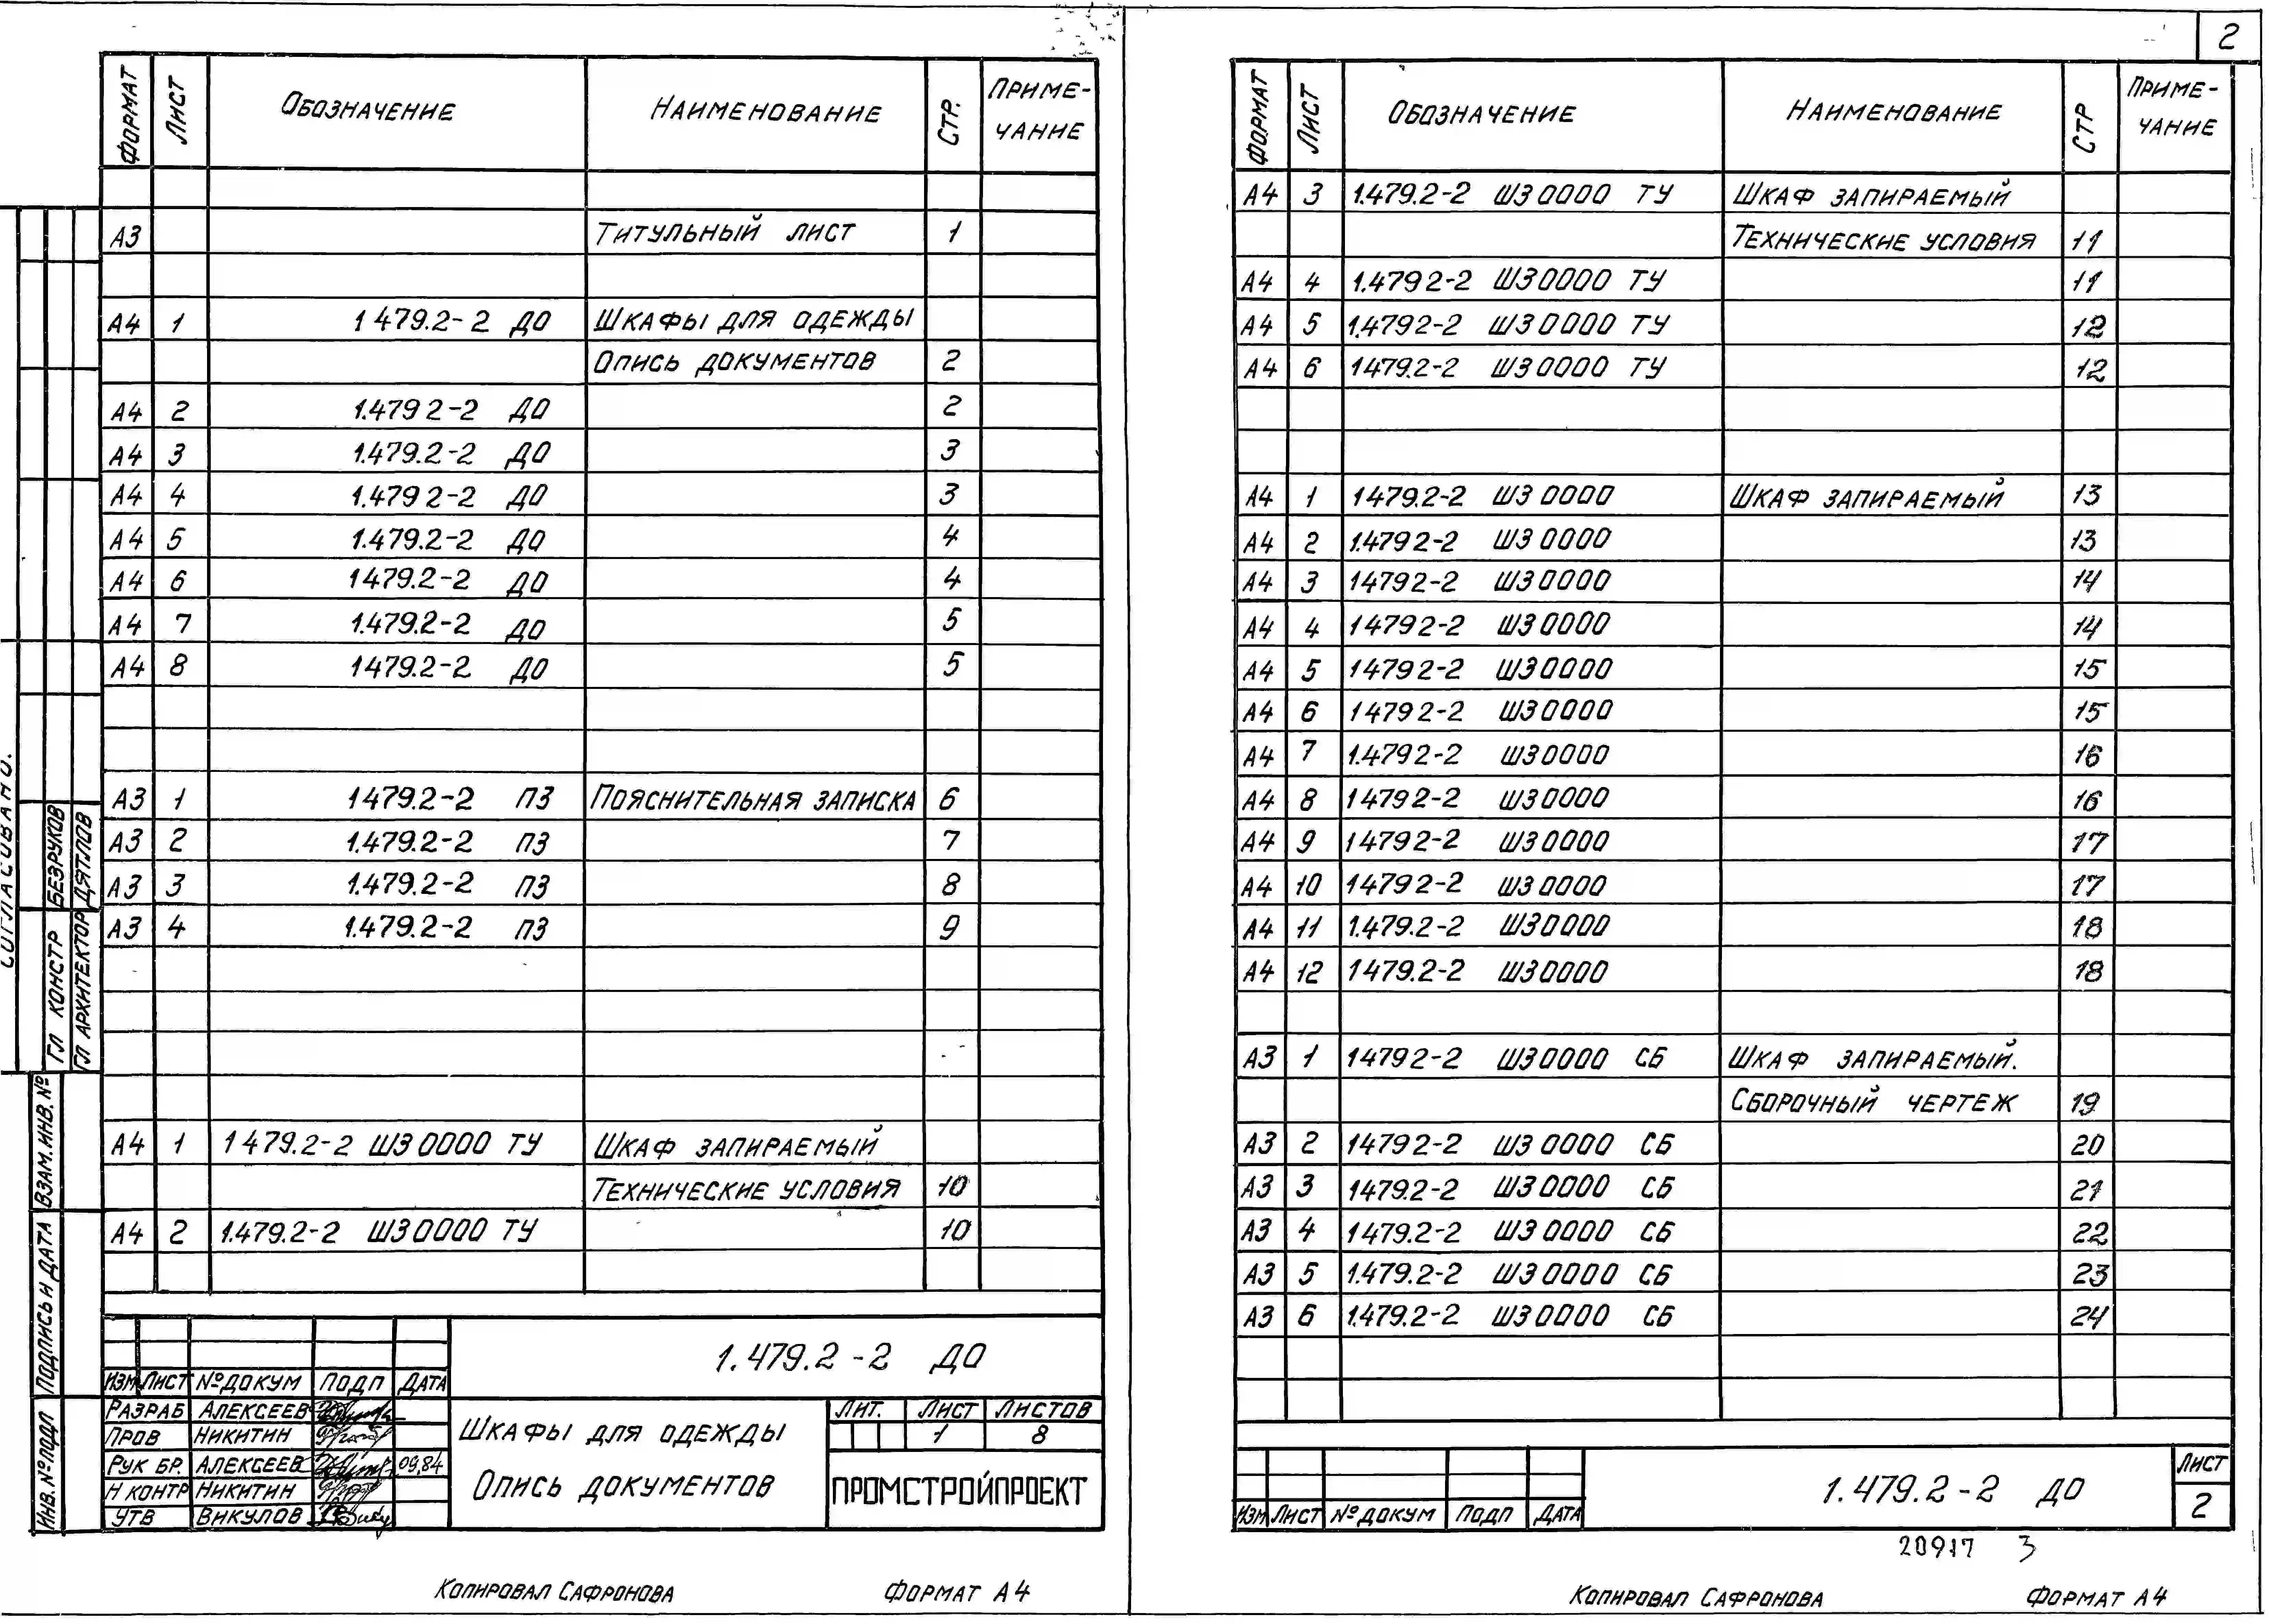 2
ФОРМАТ ЛИСТ ОБОЗНАЧЕНИЕ НАИМЕНОВАНИЕ СТР. ПРИМЕ-ЧАНИЕ
А3 ТИТУЛЬНЫЙ ЛИСТ 1
А4 1 1 479.2-2 ДО ШКАФЫ ДЛЯ ОДЕЖДЫ
ОПИСЬ ДОКУМЕНТОВ 2
А4 2 1.479 2-2 ДО 2
А4 3 1.479.2-2 ДО 3
А4 4 1.479 2-2 ДО 3
А4 5 1.479.2-2 ДО 4
А4 6 1479.2-2 ДО 4
А4 7 1.479.2-2 ДО 5
А4 8 1479.2-2 ДО 5
А3 1 1479.2-2 ПЗ ПОЯСНИТЕЛЬНАЯ ЗАПИСКА 6
А3 2 1.479.2-2 ПЗ 7
А3 3 1.479.2-2 ПЗ 8
А3 4 1.479.2-2 ПЗ 9
А4 1 1479.2-2 ШЗ 0000 ТУ ШКАФ ЗАПИРАЕМЫЙ
ТЕХНИЧЕСКИЕ УСЛОВИЯ 10
А4 2 1.479.2-2 ШЗ 0000 ТУ 10
СОГЛАСОВАНО.
ГЛ КОНСТР БЕЗРУКОВ
ГЛ АРХИТЕКТОР ДЯТЛОВ
ВЗАМ. ИНВ. №
ПОДПИСЬ И ДАТА
ИНВ. № ПОДЛ
ИЗМ ЛИСТ № ДОКУМ ПОДП ДАТА
РАЗРАБ АЛЕКСЕЕВ
ПРОВ НИКИТИН
РУК БР. АЛЕКСЕЕВ 09,84
Н КОНТР НИКИТИН
УТВ ВИКУЛОВ
1.479.2-2 ДО
ШКАФЫ ДЛЯ ОДЕЖДЫ
ОПИСЬ ДОКУМЕНТОВ
ЛИТ. ЛИСТ ЛИСТОВ
1 8
ПРОМСТРОЙПРОЕКТ
КОПИРОВАЛ САФРОНОВА ФОРМАТ А4
ФОРМАТ ЛИСТ ОБОЗНАЧЕНИЕ НАИМЕНОВАНИЕ СТР ПРИМЕ-ЧАНИЕ
А4 3 1.479.2-2 ШЗ 0000 ТУ ШКАФ ЗАПИРАЕМЫЙ
ТЕХНИЧЕСКИЕ УСЛОВИЯ 11
А4 4 1.479 2-2 ШЗ 0000 ТУ 11
А4 5 1.479 2-2 ШЗ 0000 ТУ 12
А4 6 1479.2-2 ШЗ 0000 ТУ 12
А4 1 1479.2-2 ШЗ 0000 ШКАФ ЗАПИРАЕМЫЙ 13
А4 2 1.479 2-2 ШЗ 0000 13
А4 3 1479 2-2 ШЗ 0000 14
А4 4 1479 2-2 ШЗ 0000 14
А4 5 1479 2-2 ШЗ 0000 15
А4 6 1479 2-2 ШЗ 0000 15
А4 7 1.479 2-2 ШЗ 0000 16
А4 8 1479 2-2 ШЗ 0000 16
А4 9 1479 2-2 ШЗ 0000 17
А4 10 1479 2-2 ШЗ 0000 17
А4 11 1.479.2-2 ШЗ 0000 18
А4 12 1479.2-2 ШЗ 0000 18
А3 1 1479 2-2 ШЗ 0000 СБ ШКАФ ЗАПИРАЕМЫЙ.
СБОРОЧНЫЙ ЧЕРТЕЖ 19
А3 2 1479 2-2 ШЗ 0000 СБ 20
А3 3 1479.2-2 ШЗ 0000 СБ 21
А3 4 1479.2-2 ШЗ 0000 СБ 22
А3 5 1.479.2-2 ШЗ 0000 СБ 23
А3 6 1.479.2-2 ШЗ 0000 СБ 24
ИЗМ ЛИСТ № ДОКУМ ПОДП ДАТА
1.479.2-2 ДО
ЛИСТ
2
20917 3
КОПИРОВАЛ САФРОНОВА ФОРМАТ А4